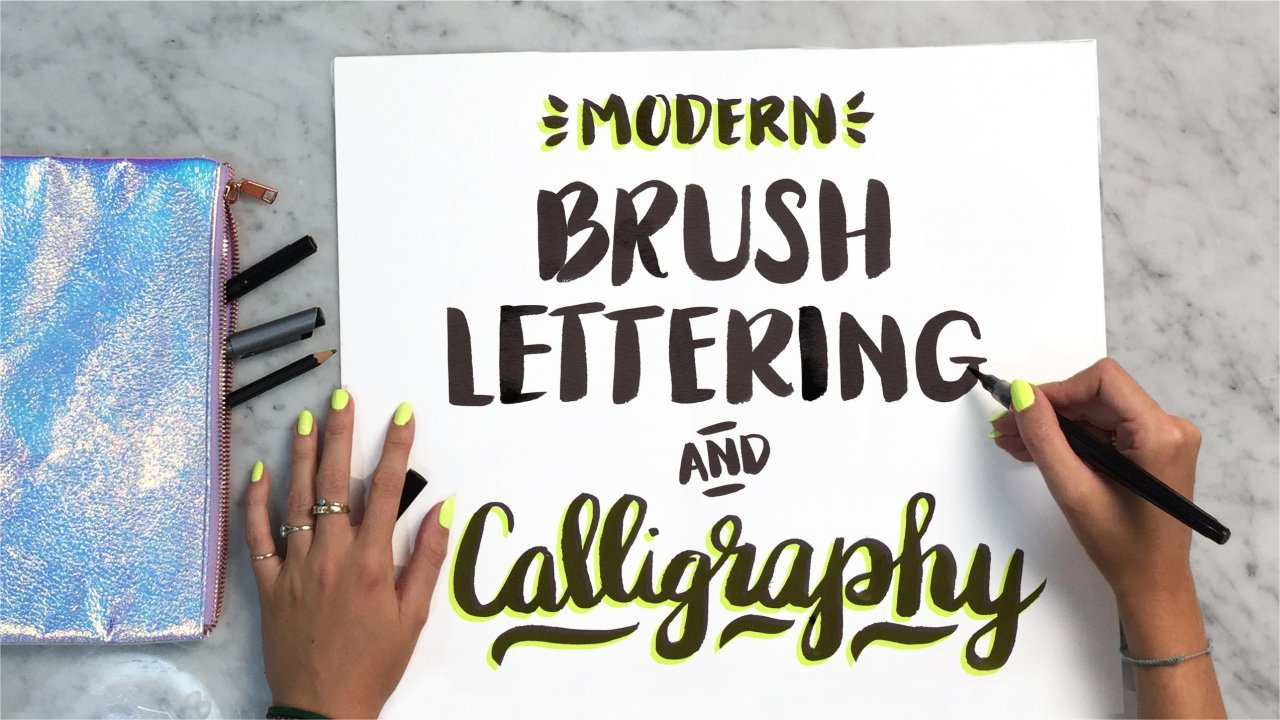 MODERN
BRUSH
LETTERING
AND
Calligraphy